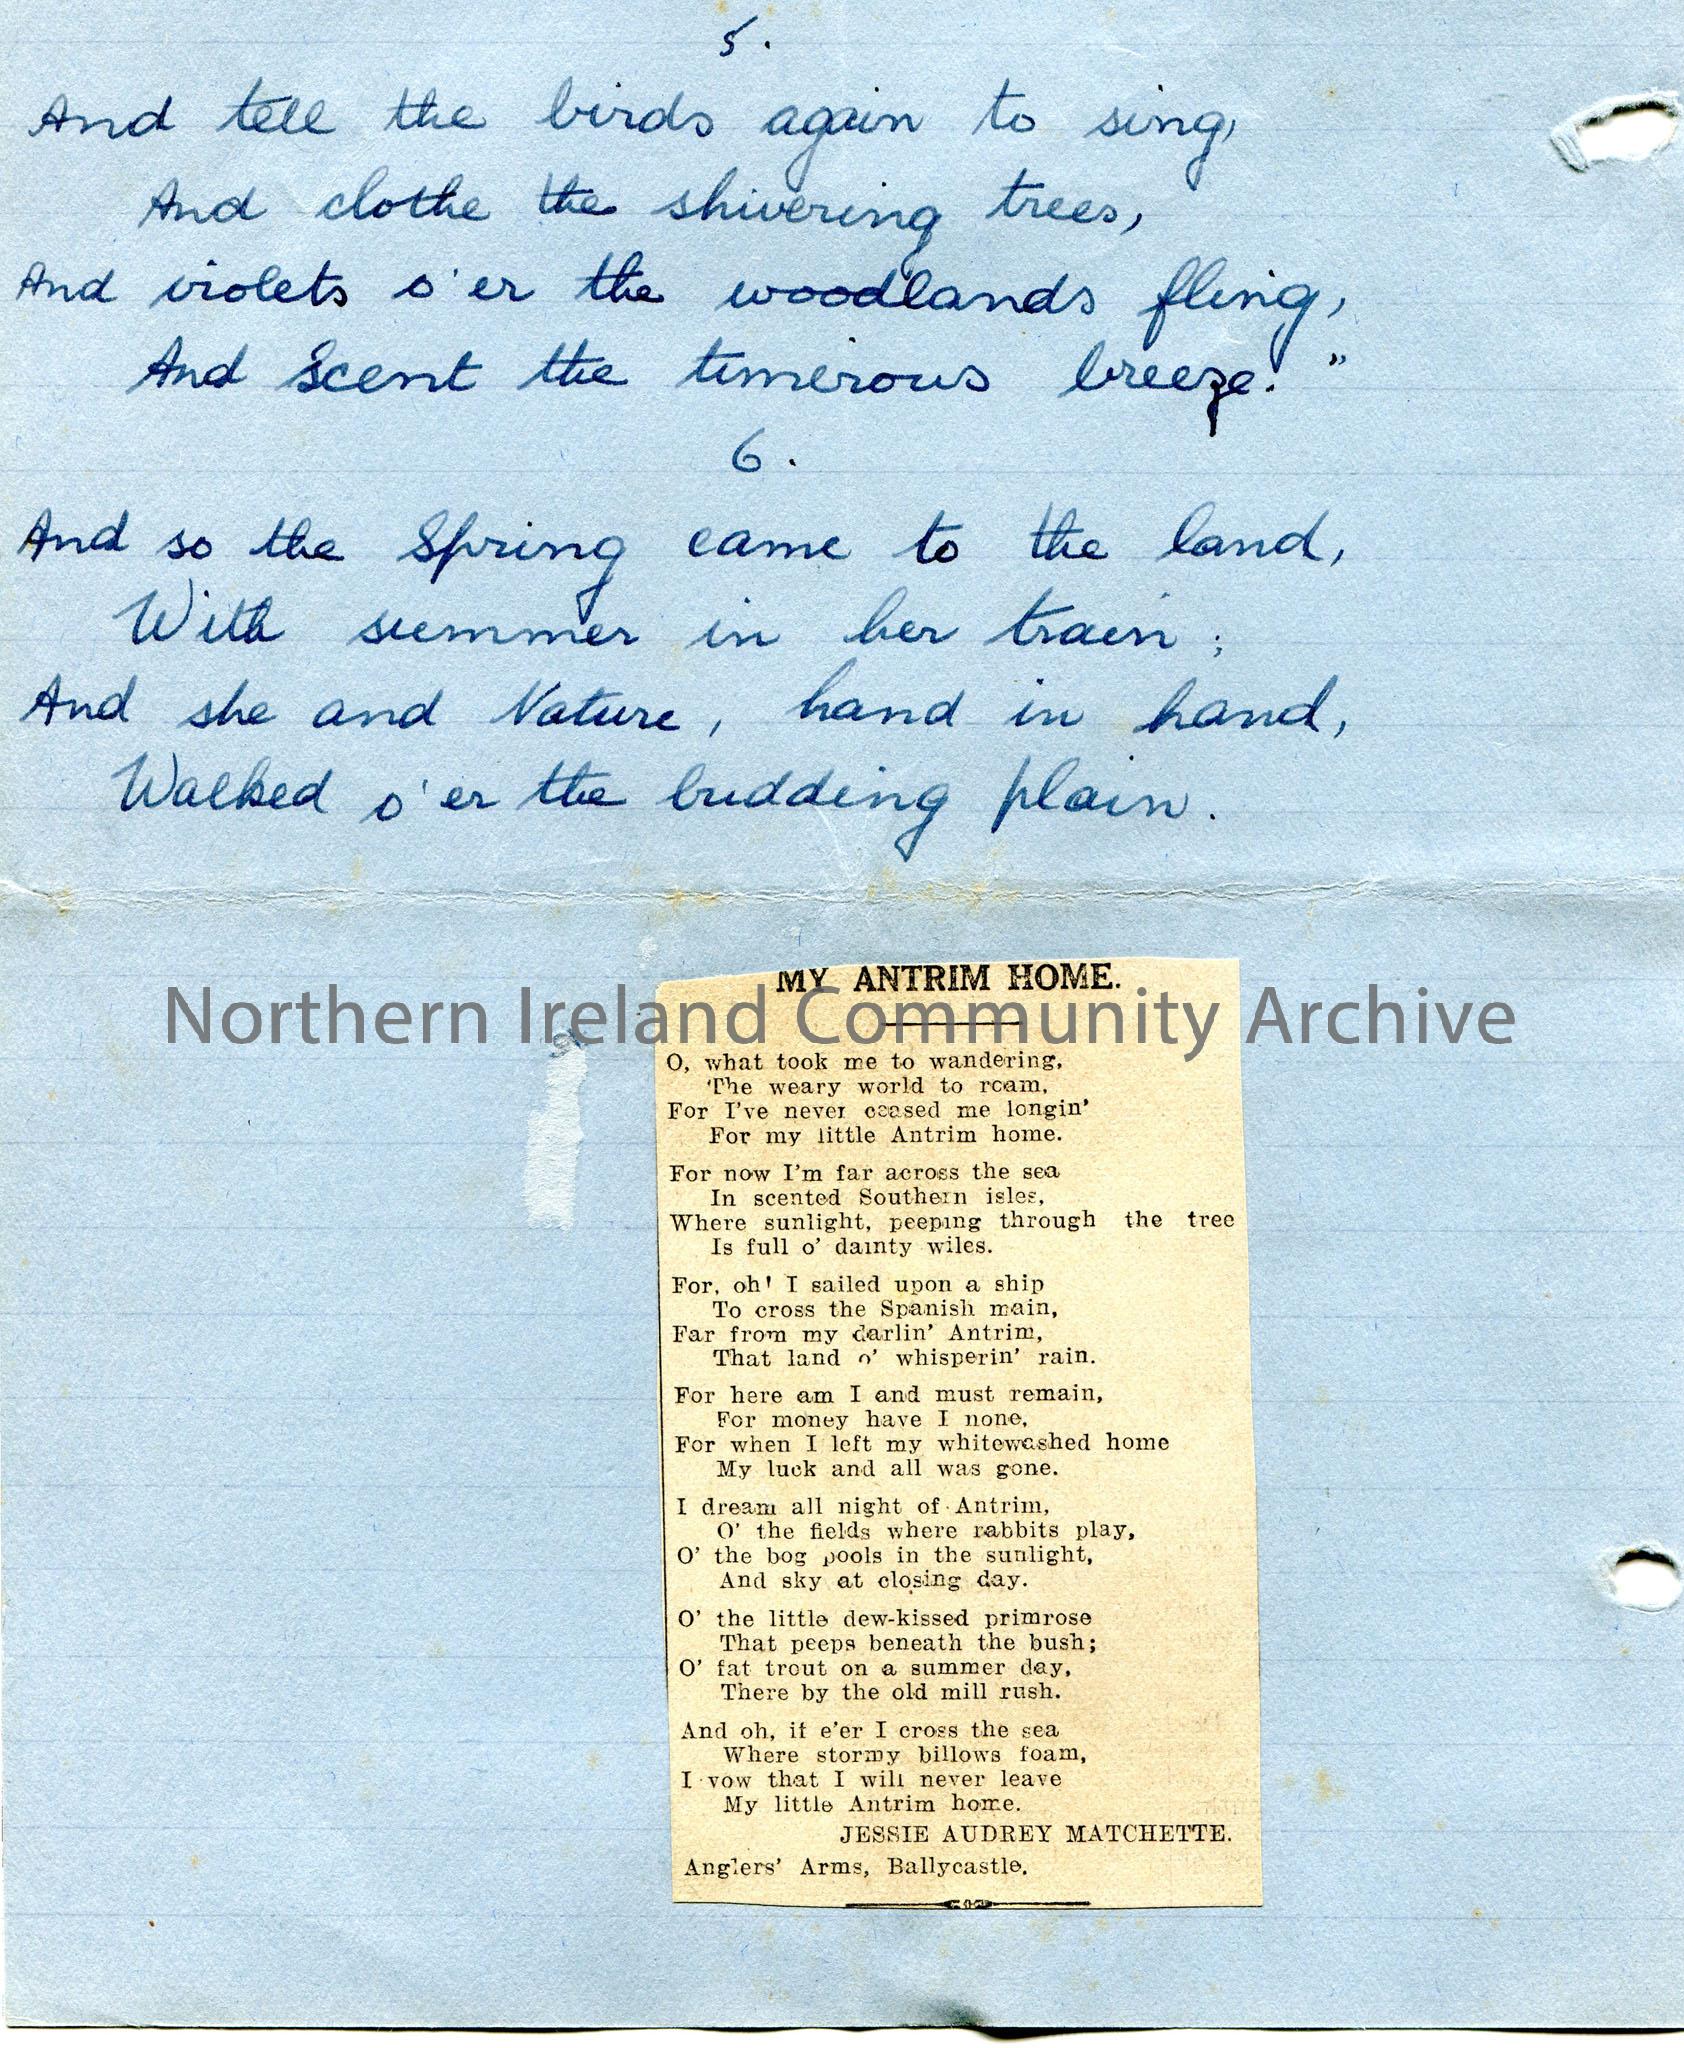 5.
And tell the birds again to sing,
And clothe the shivering trees,
And violets o'er the woodlands fling,
And Scent the timerous breeze."
6.
And so the Spring came to the land,
With summer in her train;
And she and Nature, hand in hand,
Walked o'er the budding plain.
MY ANTRIM HOME.
Northern Ireland Community Archive
O, what took me to wandering,
The weary world to roam,
For I've never ceased me longin'
For my little Antrim home.
For now I'm far across the sea
In scented Southern isles,
Where sunlight, peeping through the tree
Is full o' dainty wiles.
For, oh! I sailed upon a ship
To cross the Spanish main,
Far from my darlin' Antrim,
That land o' whisperin' rain.
For here am I and must remain,
For money have I none,
For when I left my whitewashed home
My luck and all was gone.
I dream all night of Antrim,
O' the fields where rabbits play,
O' the bog pools in the sunlight,
And sky at closing day.
O' the little dew-kissed primrose
That peeps beneath the bush;
O' fat trout on a summer day,
There by the old mill rush.
And oh, if e'er I cross the sea
Where stormy billows foam,
I vow that I will never leave
My little Antrim home.
JESSIE AUDREY MATCHETTE.
Anglers' Arms, Ballycastle.